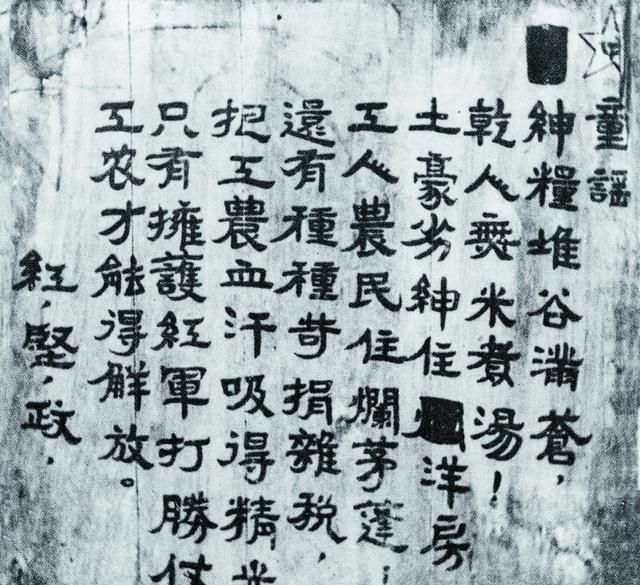 童謠
紳糧堆谷滿蒼，
乾人無米煮湯！
土豪劣紳住洋房
工人農民住爛茅蓬；
還有種種苛捐雜税，
把工農血汗吸得精光
只有擁護紅軍打勝仗
工农才能得解放。
紅.堅.政.